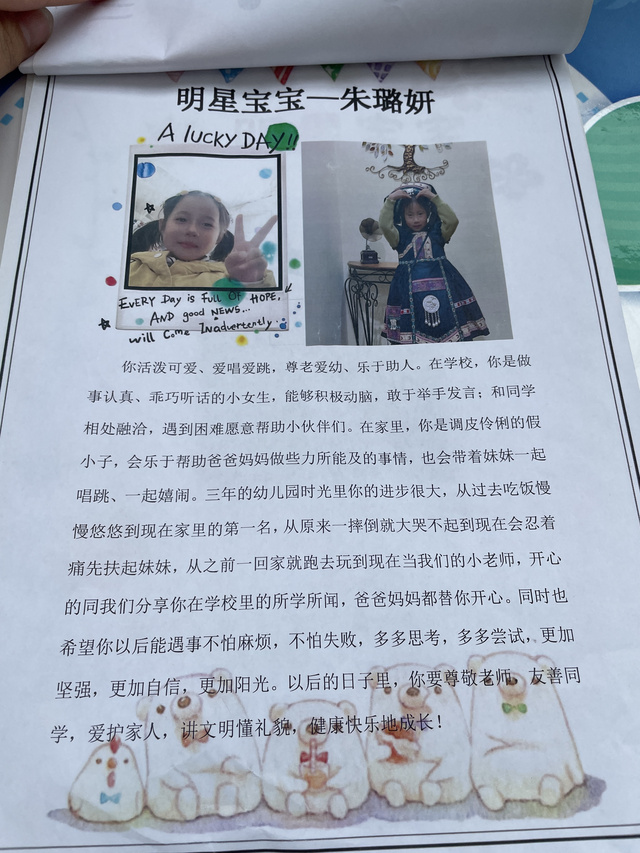 明星宝宝—朱璐妍
A LUCKY DAY!!
EVERY Day is Full OF HOPE,
AND good NEWS...
will Come Inadvertently.
你活泼可爱、爱唱爱跳，尊老爱幼、乐于助人。在学校，你是做
事认真、乖巧听话的小女生，能够积极动脑，敢于举手发言；和同学
相处融洽，遇到困难愿意帮助小伙伴们。在家里，你是调皮伶俐的假
小子，会乐于帮助爸爸妈妈做些力所能及的事情，也会带着妹妹一起
唱跳、一起嬉闹。三年的幼儿园时光里你的进步很大，从过去吃饭慢
慢悠悠到现在家里的第一名，从原来一摔倒就大哭不起到现在会忍着
痛先扶起妹妹，从之前一回家就跑去玩到现在当我们的小老师，开心
的同我们分享你在学校里的所学所闻，爸爸妈妈都替你开心。同时也
希望你以后能遇事不怕麻烦，不怕失败，多多思考，多多尝试，更加
坚强，更加自信，更加阳光。以后的日子里，你要尊敬老师，友善同
学，爱护家人，讲文明懂礼貌，健康快乐地成长！